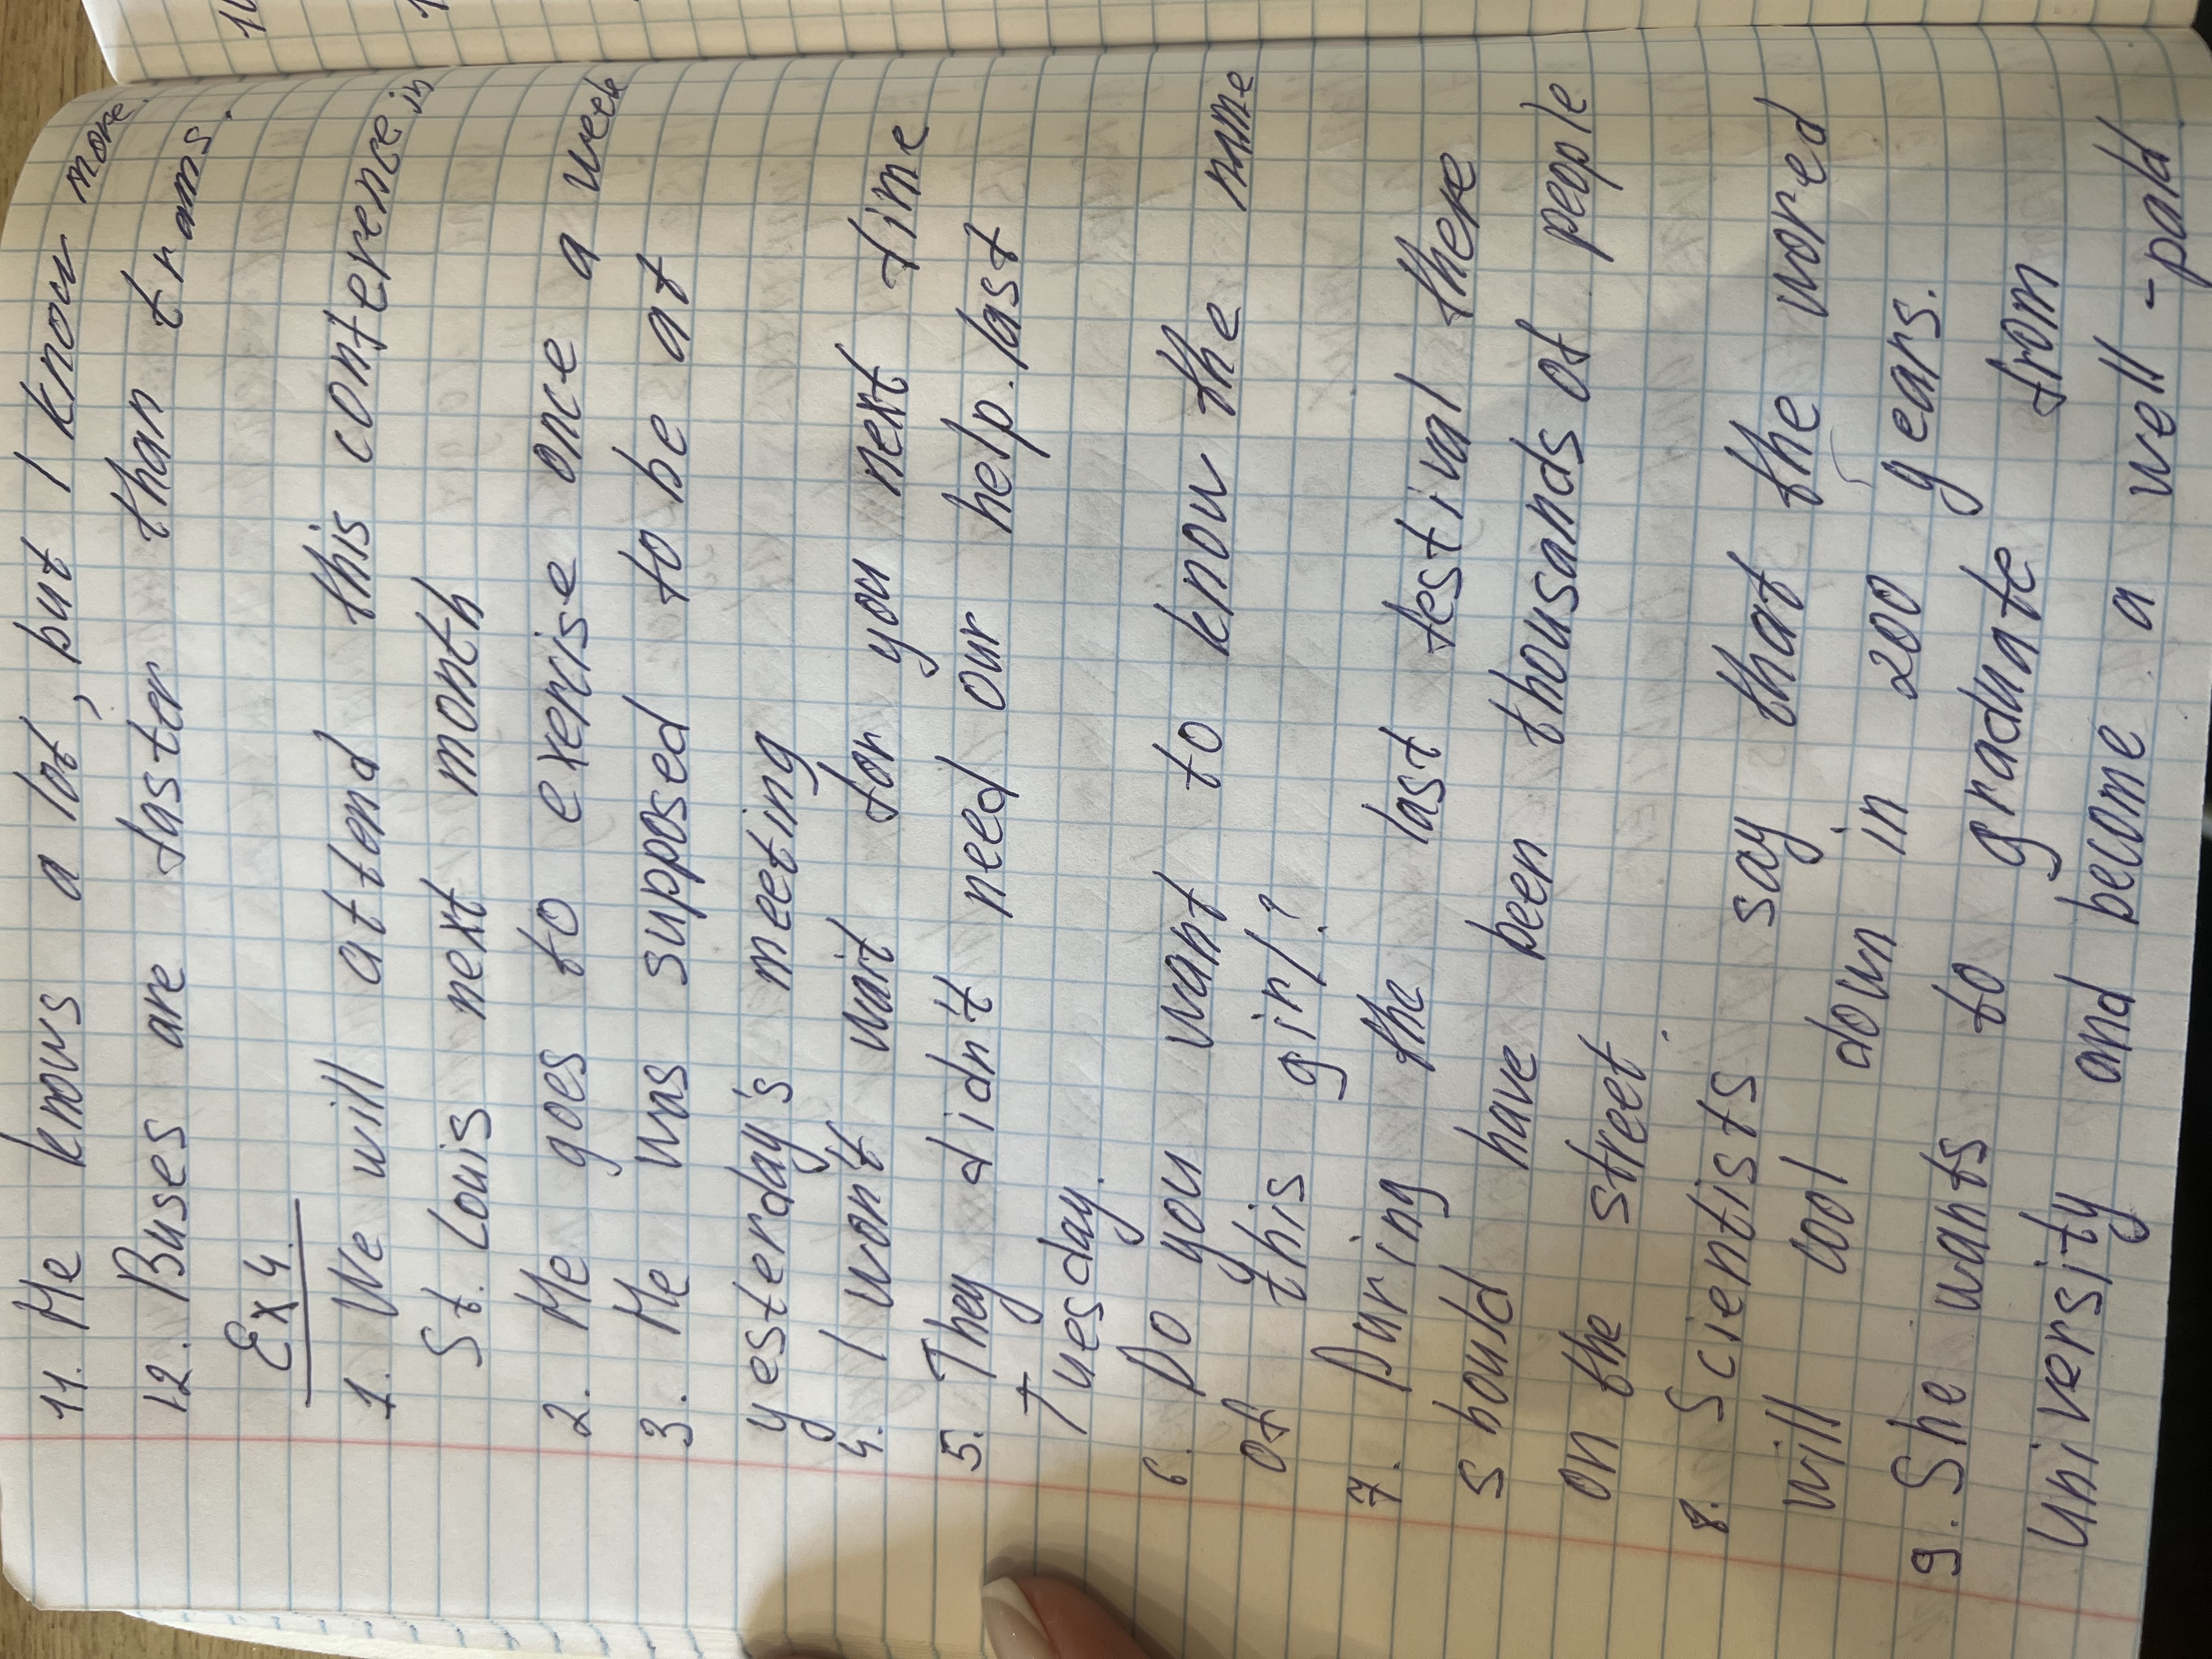 11. He knows a lot, but I know more.
12. Buses are faster than trams.
Ex 4.
1. We will attend this conference in
St. Louis next month
2. He goes to exercise once a week
3. He was supposed to be at
yesterday's meeting
4. I won't wait for you next time
5. They didn't need our help last
Tuesday.
6. Do you want to know the name
of this girl?
7. During the last festival there
should have been thousands of people
on the street.
8. Scientists say that the wored
will cool down in 200 years.
9. She wants to graduate from
university and become a well-paid